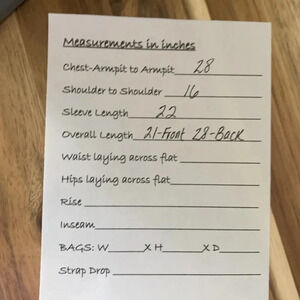 Measurements in inches
Chest-Armpit to Armpit 28
Shoulder to Shoulder 16
Sleeve Length 22
Overall Length 21-Front 28-Back
Waist laying across flat
Hips laying across flat
Rise
Inseam
BAGS: W______X H______X D______
Strap Drop